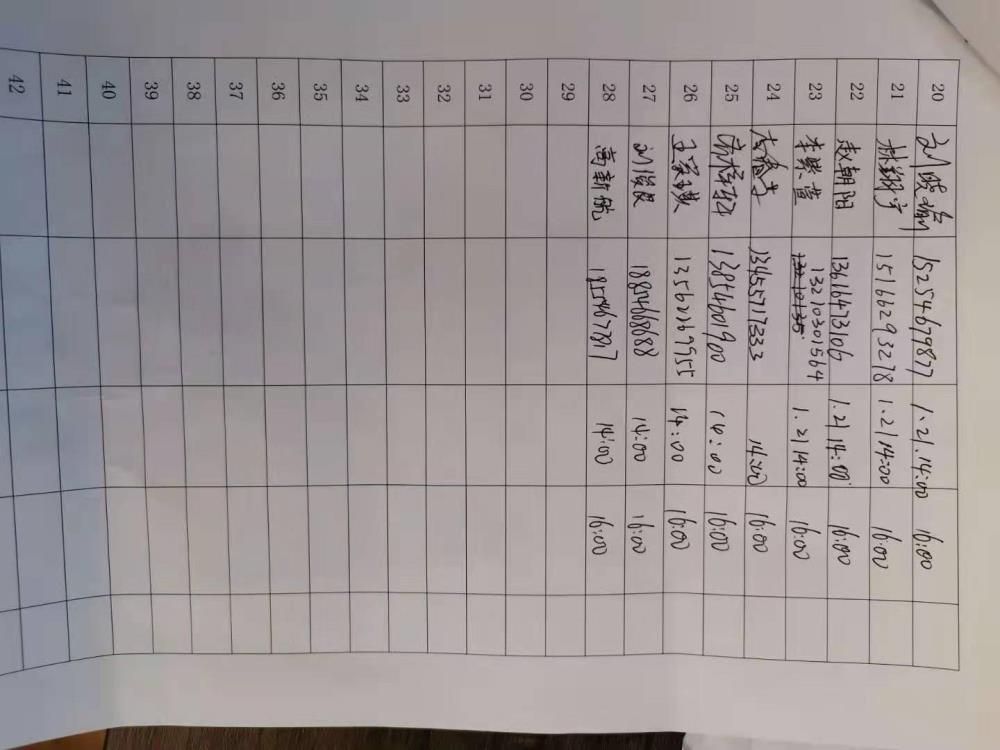 20 刘晓瑜 15254679877 1.21.14:00 16:00
21 林翔宇 15166293278 1.21 14:00 16:00
22 赵朝阳 13616473106 1.21 14:00 16:00
23 李紫萱 13210301564 1.21 14:00 16:00
24 13455717333 14:00 16:00
25 13854601900 14:00 16:00
26 13562069955 14:00 16:00
27 刘俊良 18854668688 14:00 16:00
28 高新航 1855467817 14:00 16:00
29
30
31
32
33
34
35
36
37
38
39
40
41
42